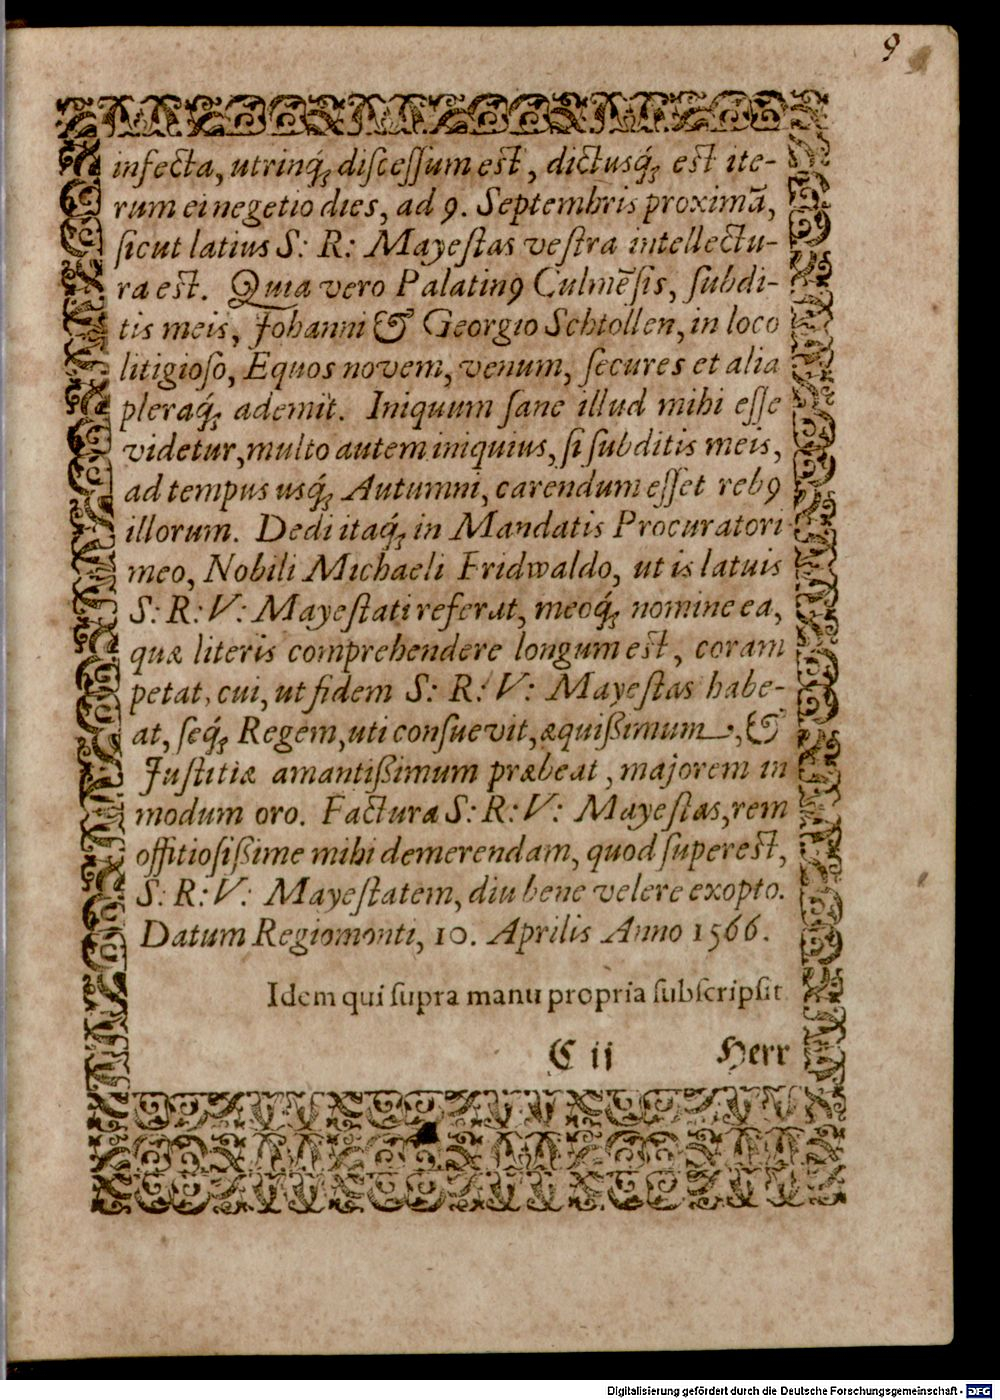 9
infecta, utrinq́ꝫ discessum est, dictusq́ꝫ est ite-
rum ei negetio dies, ad 9. Septembris proximã,
sicut latius S: R: Mayestas vestra intellectu-
ra est. Quia vero Palatinꝰ Culmẽsis, subdi-
tis meis, Johanni & Georgio Schtollen, in loco
litigioso, Equos novem, venum, secures et alia
pleraq́ꝫ ademit. Iniquum sane illud mihi esse
videtur, multo autem iniquius, si subditis meis,
ad tempus usq́ꝫ Autumni, carendum esset rebꝰ
illorum. Dedi itaq́ꝫ in Mandatis Procuratori
meo, Nobili Michaeli Fridwaldo, ut is latuis
S: R: V: Mayestati referat, meoq́ꝫ nomine ea,
quæ literis comprehendere longum est, coram
petat, cui, ut fidem S: R: V: Mayestas habe-
at, seq́ꝫ Regem, uti consuevit, æquißimum, &
Justitiæ amantißimum præbeat, majorem in
modum oro. Factura S: R: V: Mayestas, rem
offitiosißime mihi demerendam, quod superest,
S: R: V: Mayestatem, diu bene velere exopto.
Datum Regiomonti, 10. Aprilis Anno 1566.
Idem qui supra manu propria subscripsit
C ii Herr
Digitalisierung gefördert durch die Deutsche Forschungsgemeinschaft - DFG